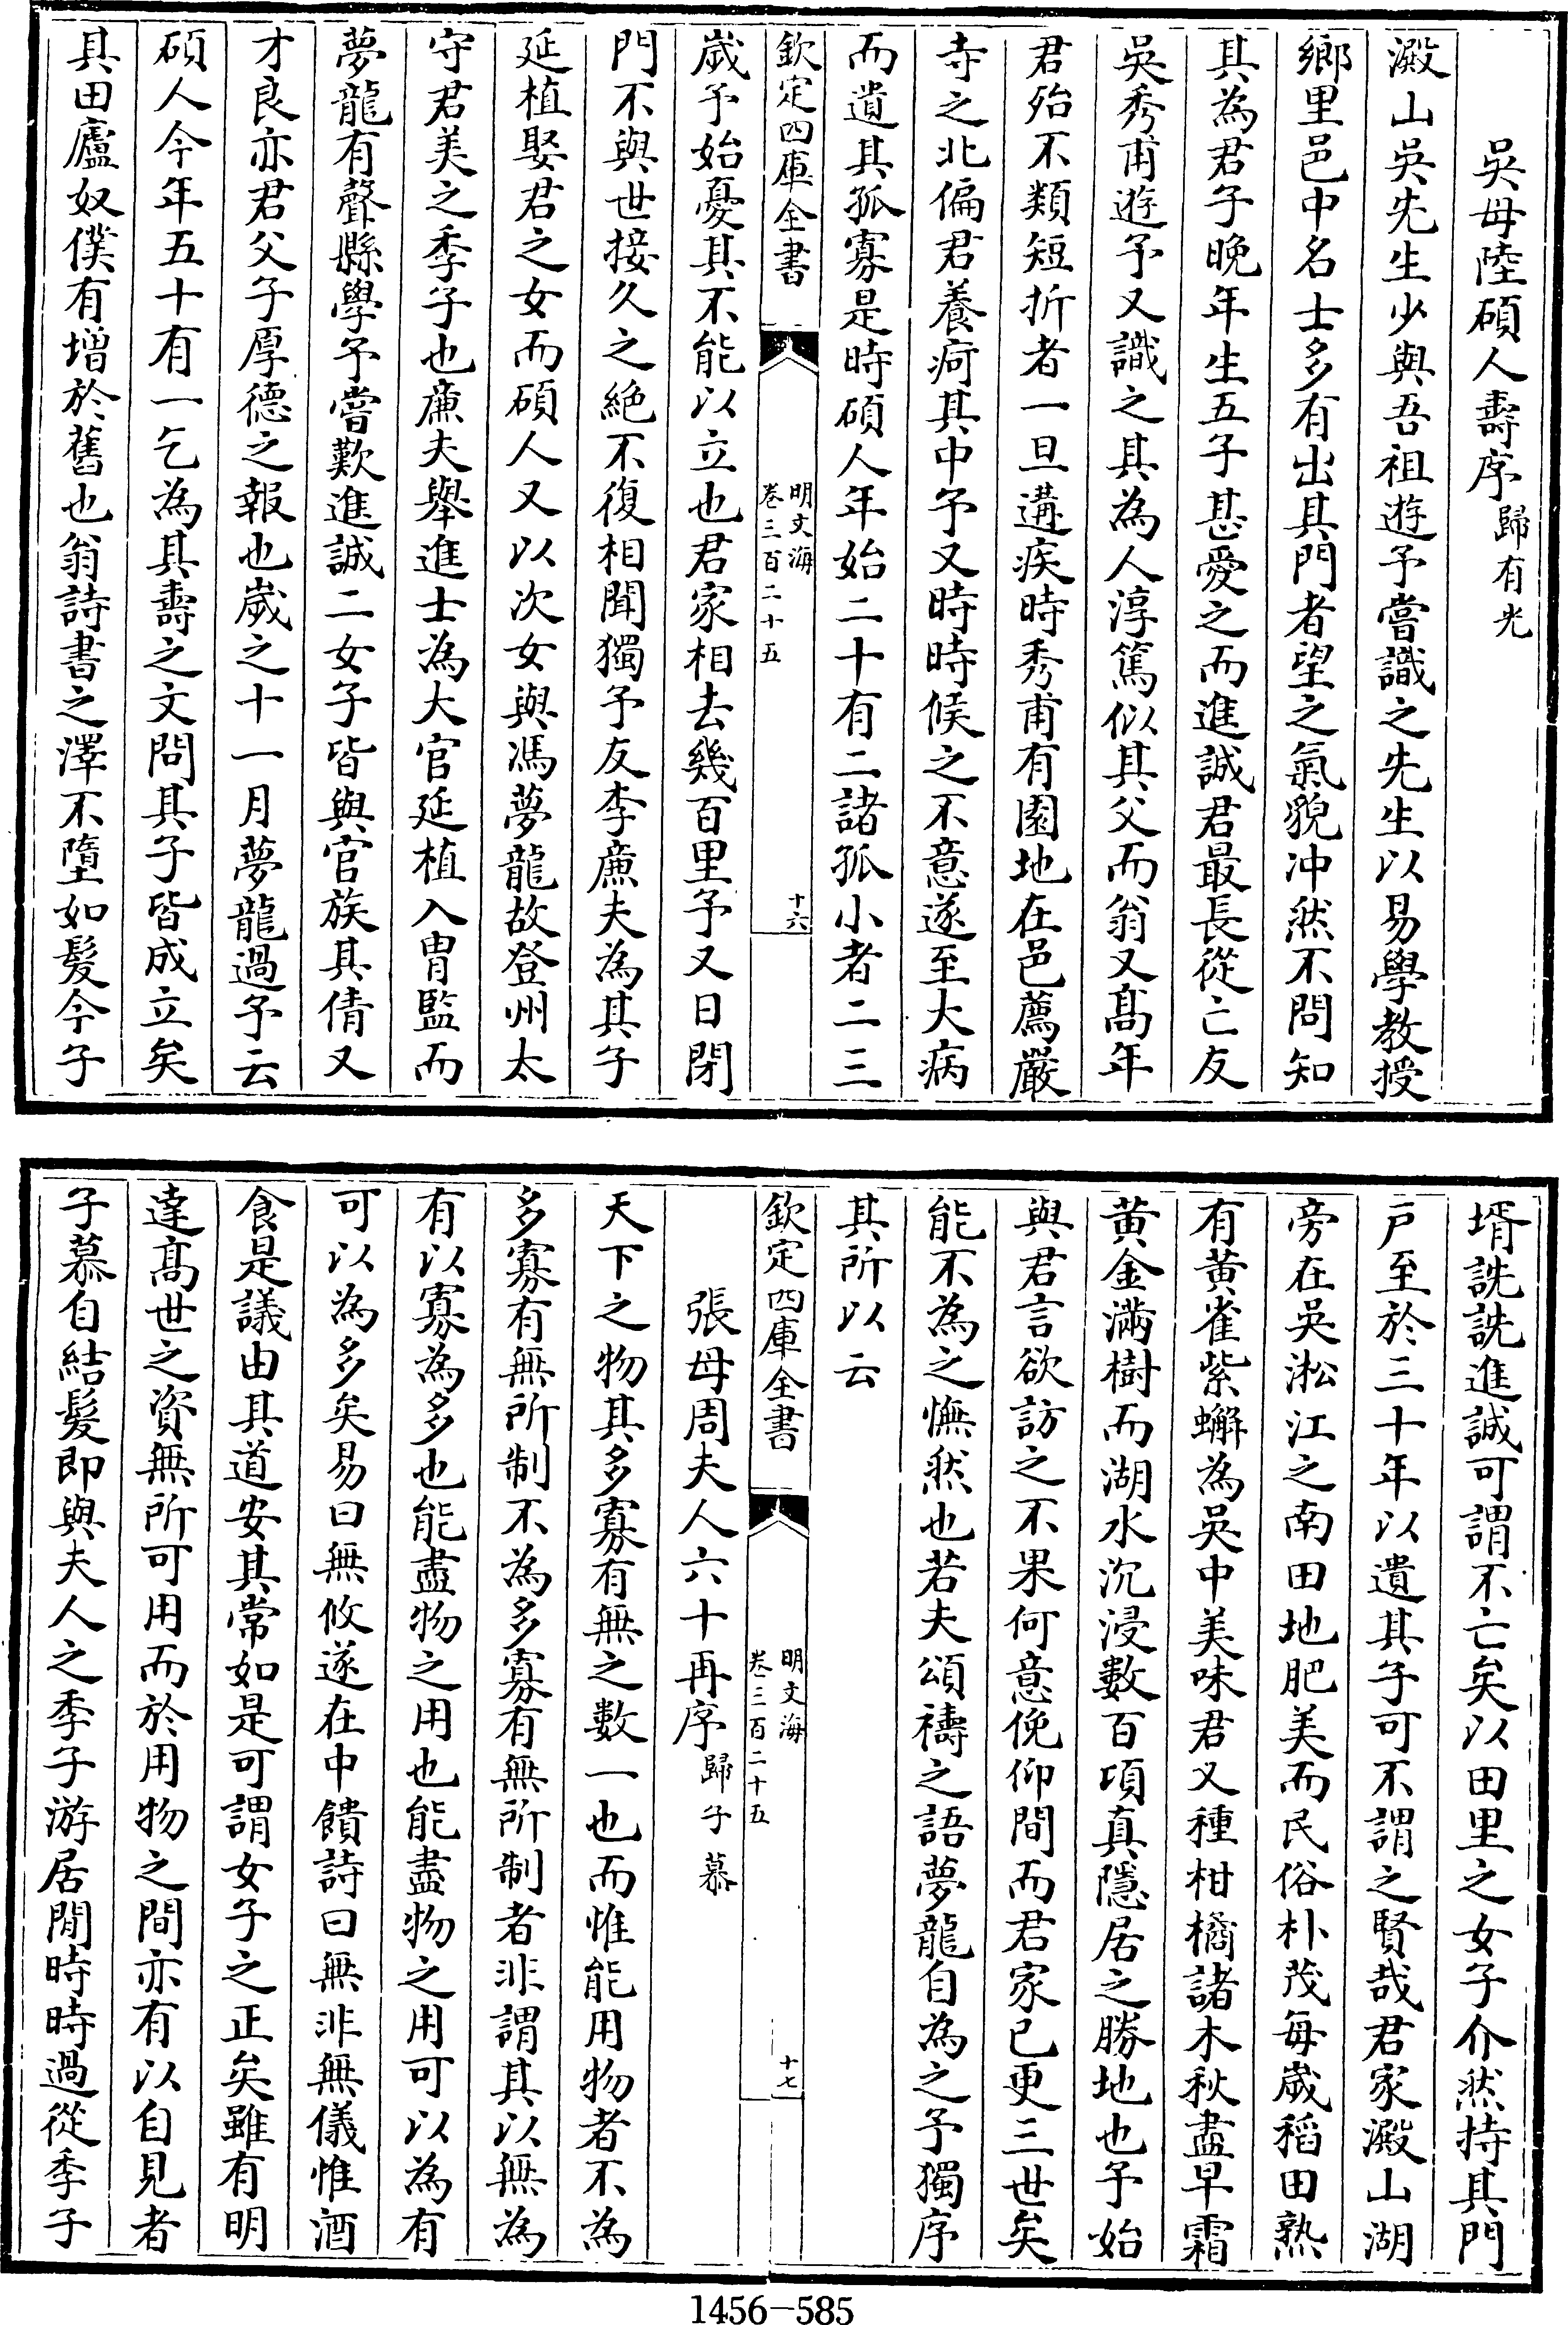 吳母陸碩人壽序 歸有光
澱山吳先生少與吾祖遊予嘗識之先生以易學教授
鄉里邑中名士多有出其門者望之氣貌冲然不問知
其為君子晚年生五子甚愛之而進誠君最長從亡友
吳秀甫遊予又識之其為人淳篤似其父而翁又髙年
君殆不類短折者一旦遘疾時秀甫有園地在邑薦嚴
寺之北偏君養疴其中予又時時候之不意遂至大病
而遺其孤寡是時碩人年始二十有二諸孤小者二三
欽定四庫全書
明文海
卷三百二十五
十六
歲予始憂其不能以立也君家相去幾百里予又日閉
門不與世接久之絶不復相聞獨予友李亷夫為其子
延植娶君之女而碩人又以次女與馮夢龍故登州太
守君美之季子也亷夫舉進士為大官延植入胄監而
夢龍有聲縣學予嘗歎進誠二女子皆與官族其倩又
才良亦君父子厚德之報也歲之十一月夢龍過予云
碩人今年五十有一乞為其壽之文問其子皆成立矣
其田廬奴僕有增於舊也翁詩書之澤不墮如髮今子
壻詵詵進誠可謂不亡矣以田里之女子介然持其門
戸至於三十年以遺其子可不謂之賢哉君家澱山湖
旁在吳淞江之南田地肥美而民俗朴茂每歲稻田熟
有黃雀紫蠏為吳中美味君又種柑橘諸木秋盡早霜
黃金滿樹而湖水沉浸數百項真隱居之勝地也予始
與君言欲訪之不果何意俛仰間而君家已更三世矣
能不為之憮然也若夫頌禱之語夢龍自為之予獨序
其所以云
欽定四庫全書
明文海
卷三百二十五
十七
張母周夫人六十再序 歸子慕
天下之物其多寡有無之數一也而惟能用物者不為
多寡有無所制不為多寡有無所制者非謂其以無為
有以寡為多也能盡物之用也能盡物之用可以為有
可以為多矣易曰無攸遂在中饋詩曰無非無儀惟酒
食是議由其道安其常如是可謂女子之正矣雖有明
達髙世之資無所可用而於用物之間亦有以自見者
子慕自結髮即與夫人之季子游居閒時時過從季子
1456-585